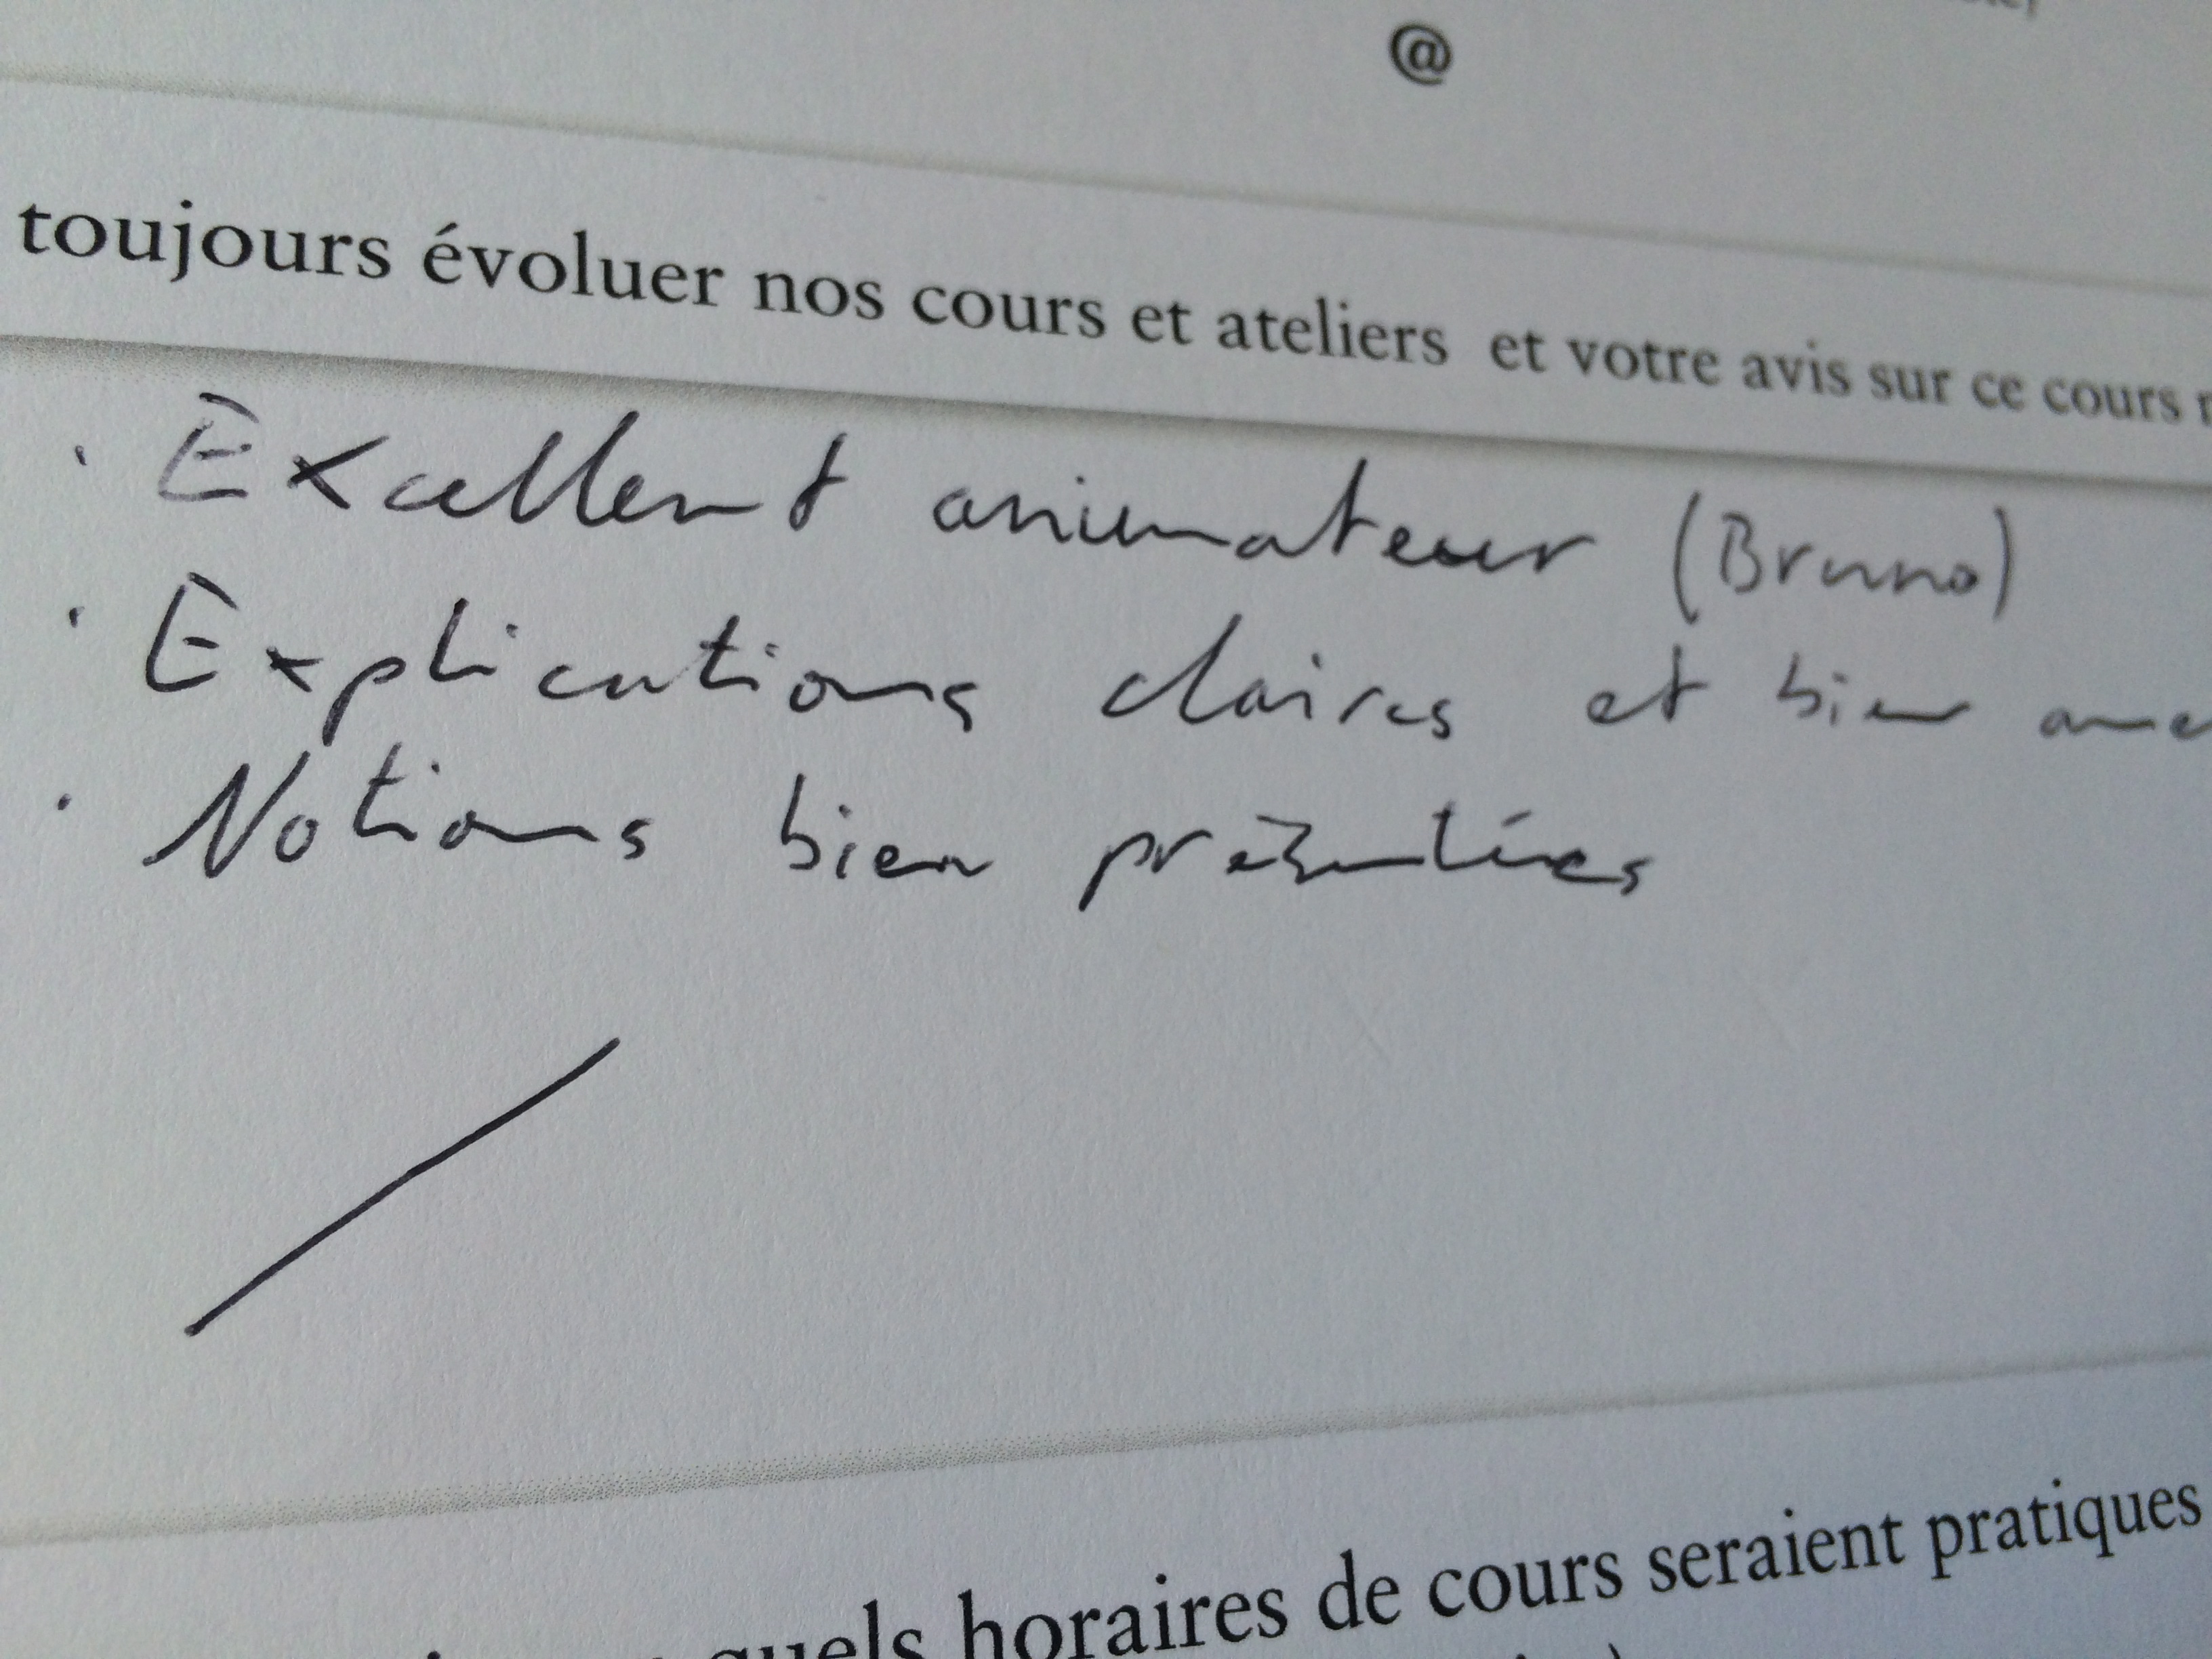 @
toujours évoluer nos cours et ateliers et votre avis sur ce cours
· Excellent animateur (Bruno)
· Explications claires et bien
· Notions bien présentées
quels horaires de cours seraient pratiques